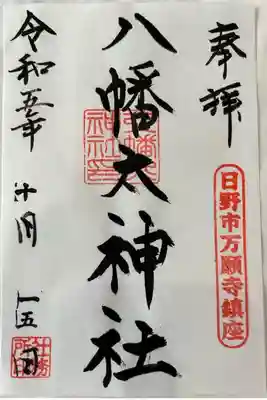 奉拝
日野市万願寺鎮座
八幡大神社
令和五年
十月
十五日
社務所印